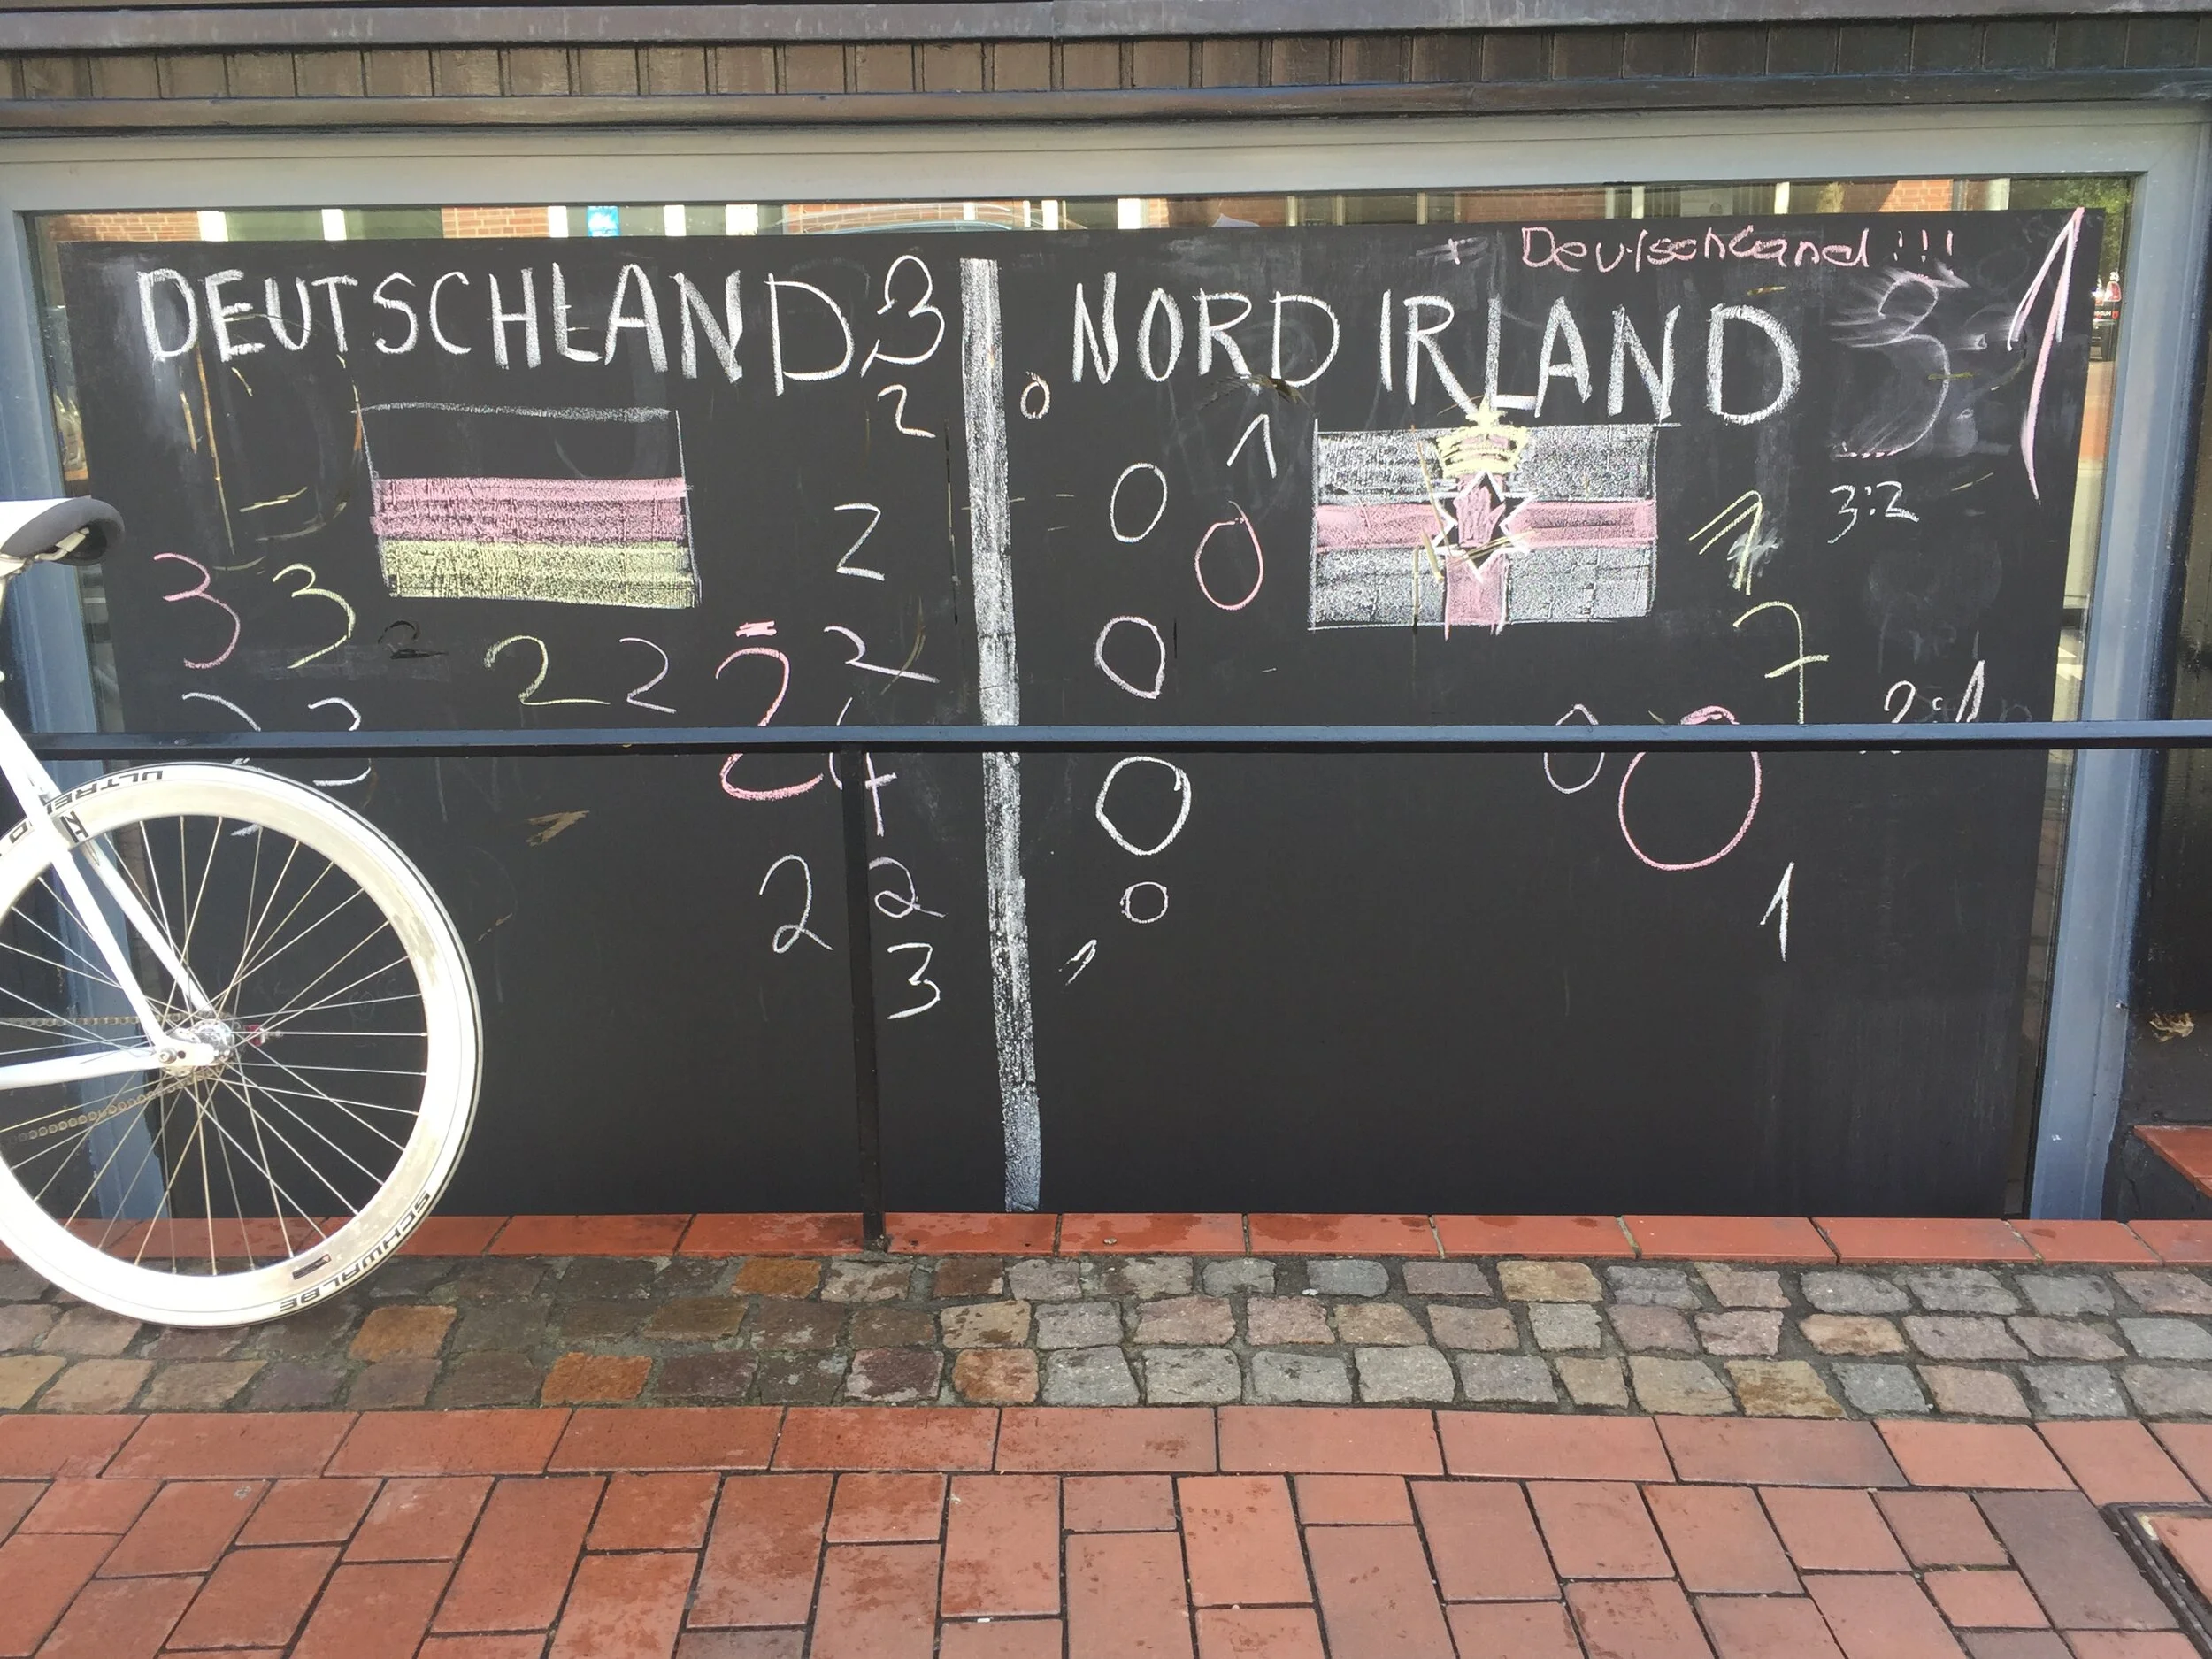 Deutschland !!!
DEUTSCHLAND 3
NORD IRLAND 3 1
2 0
1
2 0 0 1 3:2
3 3 2 2 2 2 2 0 7
2 2 4 0 0 0 2:1
2 2 0 1
3 1
ULTRE
SCHWALBE